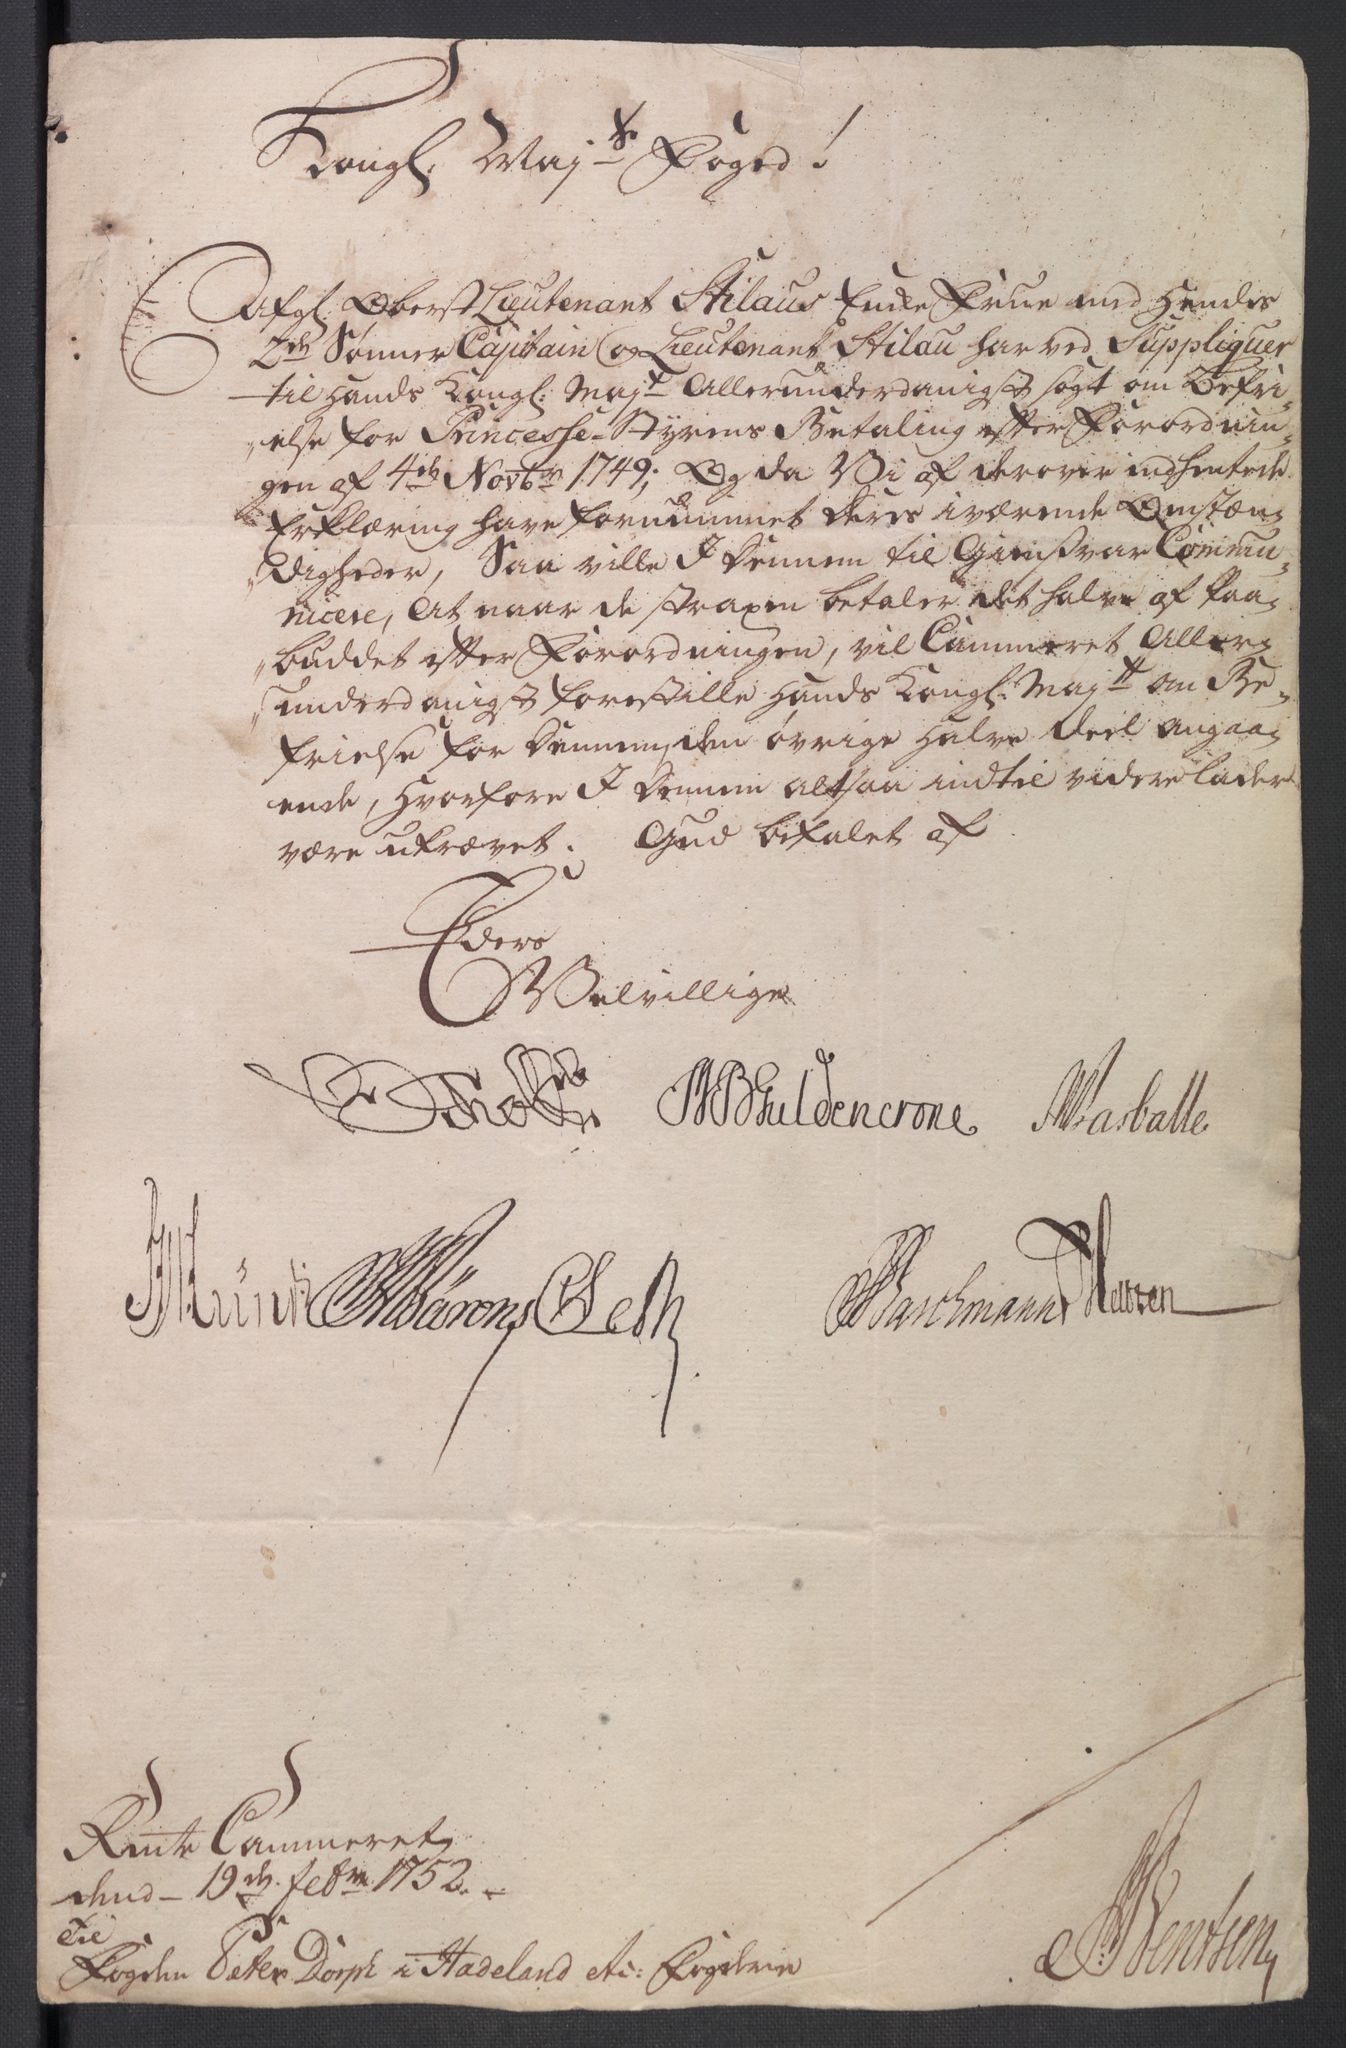 Kongl. Maj.ts Foged!
Afgl. Oberst Lieutenant Stilaus Encke Frue med hendes
2de Sønner Capitain og Lieutenant Stilau har ved Suppliquer
til Hands Kongl: Maj.t Allerunderdanigst søgt om Befri-
else for Princesse-Styrens Betaling efter Forordnin-
gen af 4de Novbr 1749; Og da Vi af derover indhentede
Erklæring have fornummet deres iværende Omstæn-
digheder, Saa ville I dennem til Giensvar Commu-
nicere, At naar de straxen betaler det halve af Paa-
buddet efter Forordningen, vil Cammeret Aller-
underdanigst forestille Hands Kongl. Maj.tt om Be-
frielse for dennem, den øvrige halve Deel angaa-
ende, Hvorfore I dennem altsaa indtil videre lader
være ukrævet. Gud befalet af
Eders
Velvillige
Guldencrone Wasballe
Bentsen
Rente Cammeret
dend 19de Febr. 1752.
Til
Fogden Peter Dorph i Hadeland etc: Fogderie